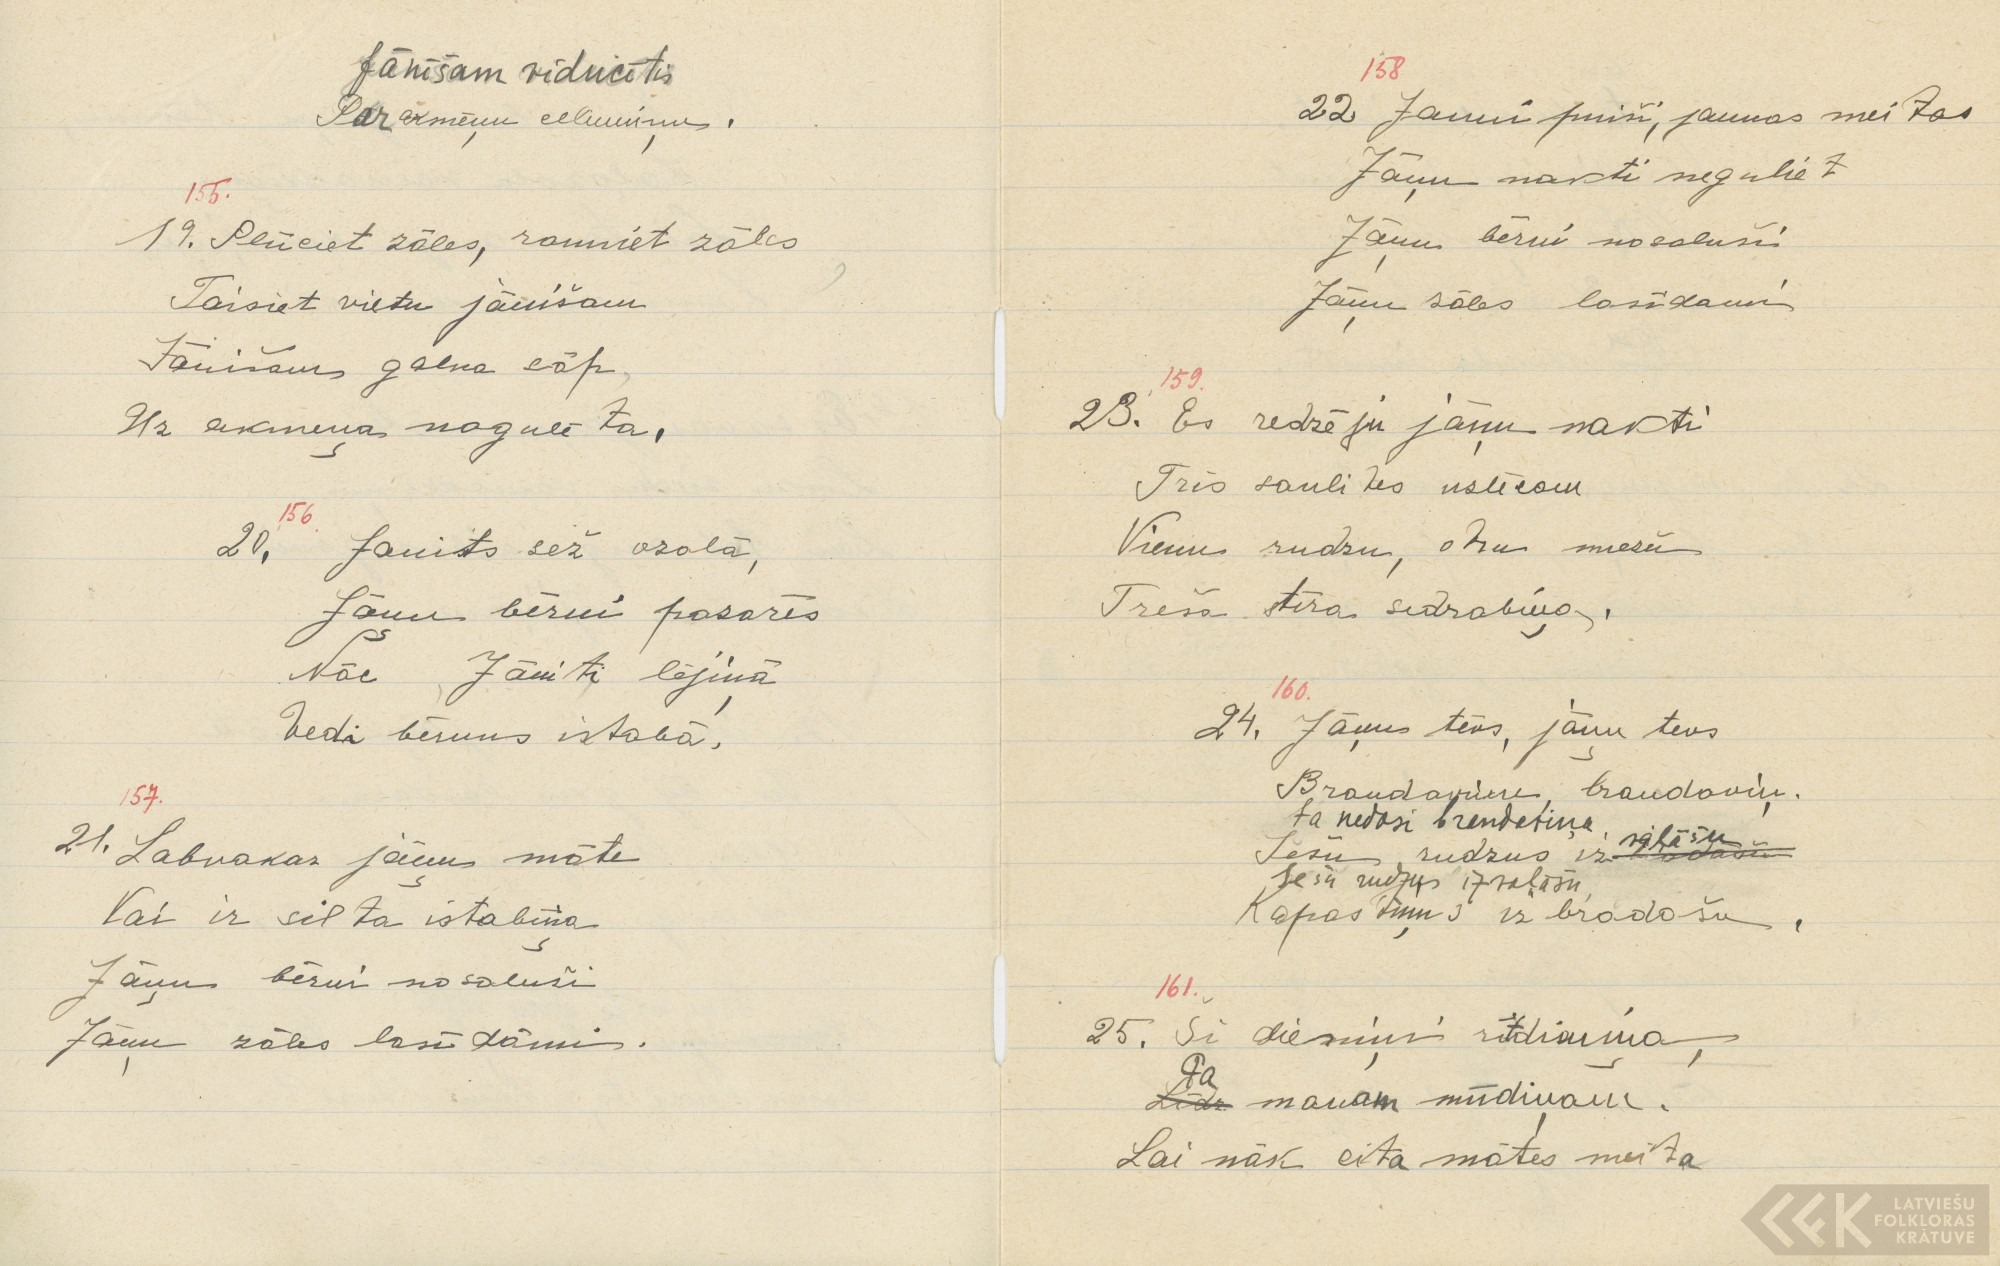 Jānīšam viducītis
Par akmeņu celumiņu.
155.
19. Plūciet zāles, rauniet zāles
Taisiet vietu jānīšam
Jānīšam galva sāp
Uz akmeņa nogulēta.
156.
20. Janits sež ozolā,
Jāņu bērni pazarēs
Nāc Jānīti lējiņā
Vedi bērnus istabā.
157.
21. Labvakar jāņu māte
Vai ir silta istabiņa
Jāņu bērni nosaluši
Jāņu zāles lasīdāmi.
158
22 Jauni puiši, jaunas meitas
Jāņu nakti neguliet
Jāņu bērni nosaluši
Jāņu zāles lasīdami
159.
23. Es redzēju jāņu nakti
Trīs saulītes uslēcam
Vienu rudzu, otru miezu
Trešā tīra sidrabiņa.
160.
24. Jāņu tēvs, jāņu tevs
Brandavīnu, brandaviņ.
ta nedosi brendetiņa
Iešu rudzus iz vaļāšu
Iešu rudzus izvaļāšu
Kapastiņus izbradāšu.
161.
25. Šī dieniņi rītdianiņa,
Pa manam mūdiņam.
Lai nāk cita mātes meita
LATVIEŠU
FOLKLORAS
KRĀTUVE